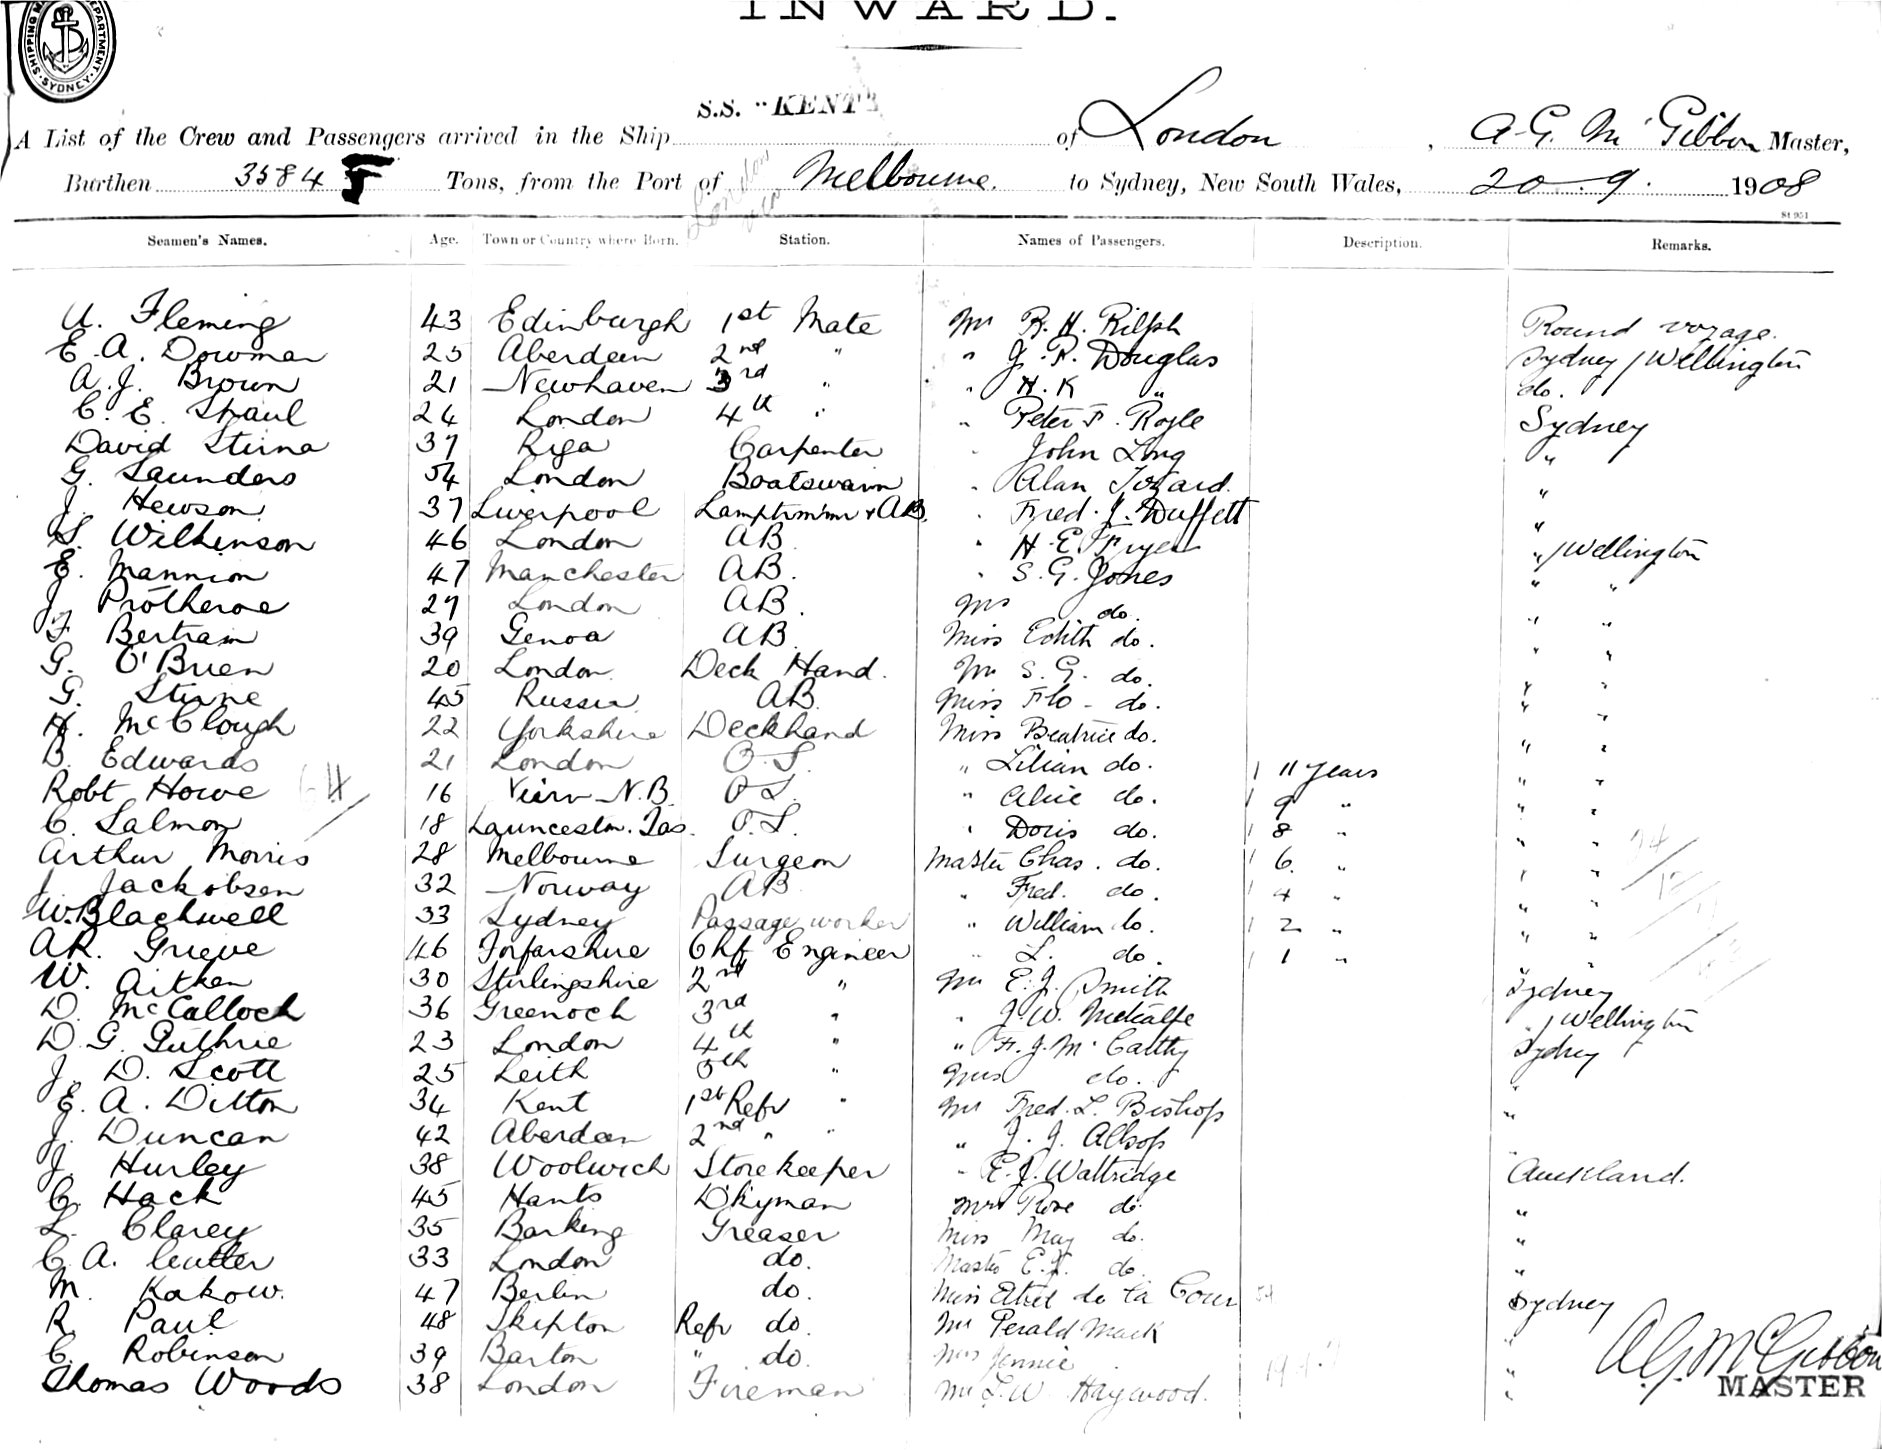 INWARD.
SHIPPING MA DEPARTMENT. SYDNEY.
S.S. "KENT"
A List of the Crew and Passengers arrived in the Ship of London, A. G. McGibbon Master,
Burthen 3584 Tons, from the Port of Melbourne. to Sydney, New South Wales, 20.9. 1908
St 951
Seamen's Names. Age. Town or Country where Born. Station. Names of Passengers. Description. Remarks.
A. Fleming 43 Edinburgh 1st Mate Mr R. H. Rilph Round voyage.
E. A. Dowman 25 Aberdeen 2nd " " J. R. Douglas Sydney / Wellington
A. J. Brown 21 Newhaven 3rd " " H. K " do.
C. E. Spaul 24 London 4th " " Peter F. Royle Sydney
David Stirna 37 Riga Carpenter " John Long "
G. Saunders 54 London Boatswain " Alan Tozard. "
J. Hewson 37 Liverpool Lamptrimmr & AB. " Fred. J. Duffett "
S. Wilkinson 46 London AB " H. E. Fryer " / Wellington
E. Mannion 47 Manchester AB. " S. G. Jones " "
J. Protheroe 27 London AB. Mrs do. " "
F. Bertram 39 Genoa AB. Miss Edith do. " "
G. O'Brien 20 London Deck Hand. Mr S. G. do. " "
G. Stirne 45 Russia AB. Miss Flo - do. " "
H. McClough 22 Yorkshire Deckhand Miss Beatrice do. " "
B. Edwards 21 London O.S. " Lilian do. 11 years " "
Robt Howe 16 N.B. O.S. " Alice do. 9 " " "
C. Salmon 18 Launceston. Tas. O.S. " Doris do. 8 " " "
Arthur Morris 28 Melbourne Surgeon Master Chas. do. 6. " " "
J. Jackobsen 32 Norway AB " Fred. do. 4 " " "
W. Blackwell 33 Sydney Passage worker " William do. 2 " " "
A.R. Grieve 46 Forfarshire Chf Engineer " L. do. 1 " " "
W. Aitken 30 Stirlingshire 2nd " Mr E. J. Smith Sydney
D. McCalloch 36 Greenock 3rd " " J. W. Metcalfe " / Wellington
D. G. Guthrie 23 London 4th " " F. J. McCatthy Sydney
J. D. Scott 25 Leith 5th " Mrs do. "
E. A. Ditton 34 Kent 1st Refr " Mr Fred. L. Bishop "
J. Duncan 42 Aberdeen 2nd " " " J. J. Allsop "
J. Hurley 38 Woolwich Storekeeper " E. J. Wattridge Auckland.
C. Hack 45 Hants D'kyman Mrs Rose do. "
L. Clarey 35 Barking Greaser Miss May do. "
C. A. Cutter 33 London do. Master E. J. do. "
M. Kakow. 47 Berlin do. Miss Ethel de la Cour Sydney
R. Paul 48 Skipton Refr do. Mr Gerald Mack "
C. Robinson 39 Barton " do. Mrs Jennie "
Thomas Woods 38 London Fireman Mr L. W. Haywood. "
A. G. McGibbon
MASTER